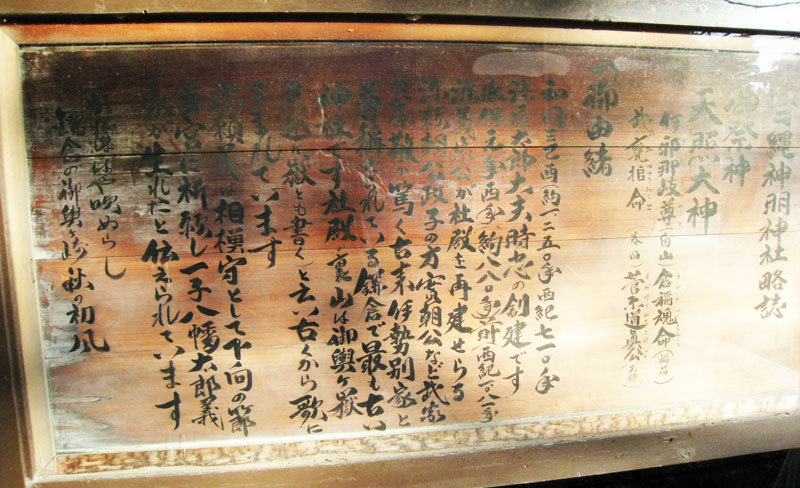 縄神明神社略誌
御祭神
天照大神
伊邪那岐尊(白山)倉稲魂命(稲荷)
武甕槌命(春日)菅原道真公(天神)
御由緒
和同三己酉(約一二五〇年西紀七一〇年
太郎大夫時忠の創建です
元年酉(約八〇年前西紀一〇八一年
公が社殿を再建せらる
頼朝公政子の方實朝公など武家
崇敬が篤く古来伊勢別家と
尊称されている鎌倉で最も古い
神社です社殿の裏山は御輿ヶ嶽
見越ヶ嶽とも書くと云い古くから歌に
よまれています
源頼義は相模守として下向の節
当宮に祈願し一子八幡太郎義
家が生れたと伝えられています
や吹ぬらし
鎌倉の御輿崎秋の初風